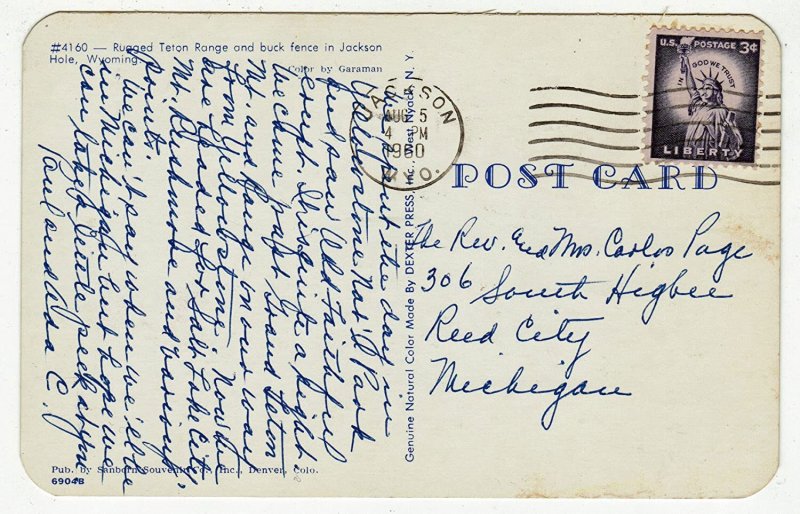 #4160 — Rugged Teton Range and buck fence in Jackson
Hole, Wyoming
Color by Garaman
spent the day in
Yellowstone Nat'l Park
and saw Old Faithful
erupt. quite a sight
We came past Grand Teton
Mt. and Range on our way
from Yellowstone. Now we
are headed for Salt Lake City
Mt. Rushmore and various
points.
We can't say when we'll be
in Michigan but hope we
can take little peek at you
Paul and Ada C.
Pub. by Sanborn Souvenir Co., Inc., Denver, Colo.
6904B
Genuine Natural Color Made By DEXTER PRESS, Inc., West Nyack, N. Y.
JACKSON
AUG 5
4 PM
1960
WYO.
U.S. POSTAGE 3¢
IN GOD WE TRUST
LIBERTY
POST CARD
The Rev. and Mrs. Carlos Page
306 South Higbee
Reed City
Michigan